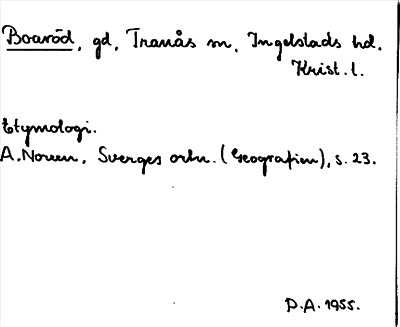 Boaröd, gd, Tranås sn, Ingelstads hd.
Krist. l.
Etymologi.
A. Noreen, Sverges ortn. (Geografien), s. 23.
D.A. 1955.